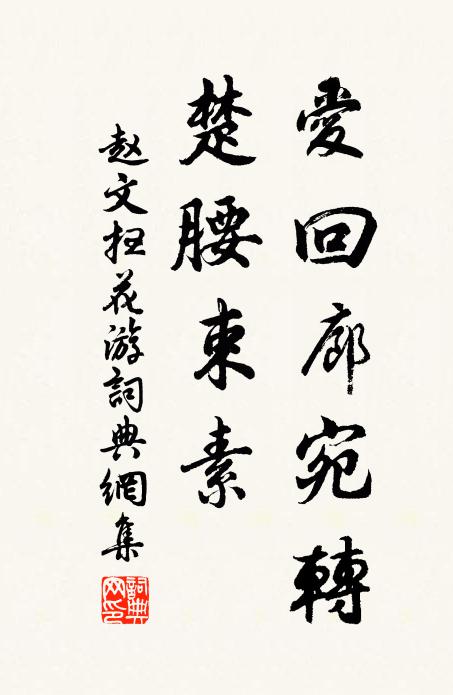 愛回廊宛轉
楚腰束素
赵文扫花游詞典網集
詞典網印